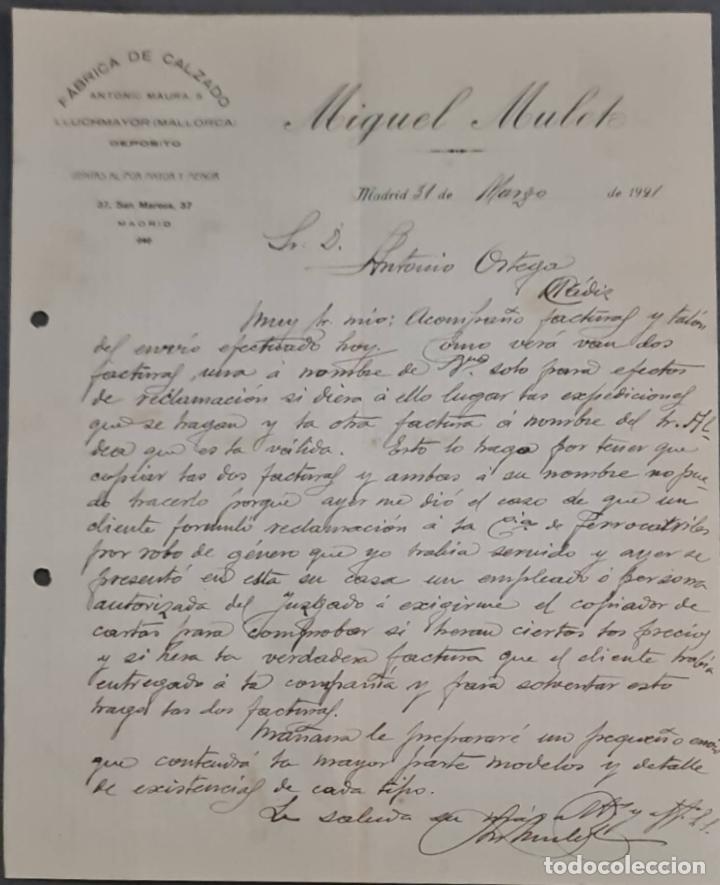 FÁBRICA DE CALZADO
ANTONIO MAURA, 5
LLUCHMAYOR (MALLORCA)
DEPOSITO
VENTAS AL POR MAYOR Y MENOR
37, San Marcos, 37
MADRID
Miguel Mulet
Madrid 31 de Marzo de 1921
Sr. D.
Antonio Ortega
Cádiz
Muy sr. mio: Acompaño facturas y talón
del envio efectuado hoy. Como verá van dos
facturas, una á nombre de solo para efectos
de reclamación si diera á ello lugar las expediciones
que se hagan y la otra factura á nombre del sr. Al-
dea que es la válida. Esto lo hago por tener que
copiar las dos facturas y ambas á su nombre no pue-
do hacerlo porque ayer me dió el caso de que un
cliente formuló reclamación á la Cia. de Ferrocarriles
por robo de género que yo habia servido y ayer se
presentó en esta su casa un empleado ó persona
autorizada del Juzgado á exigirme el copiador de
cartas para comprobar si heran ciertos los precios
y si hera la verdadera factura que el cliente habia
entregado á la compañia y para solventar esto
hago las dos facturas.
Mañana le prepararé un pequeño envio
que contendrá la mayor parte modelos y detalle
de existencias de cada tipo.
Le saluda su y
todocoleccion
todocoleccion.net